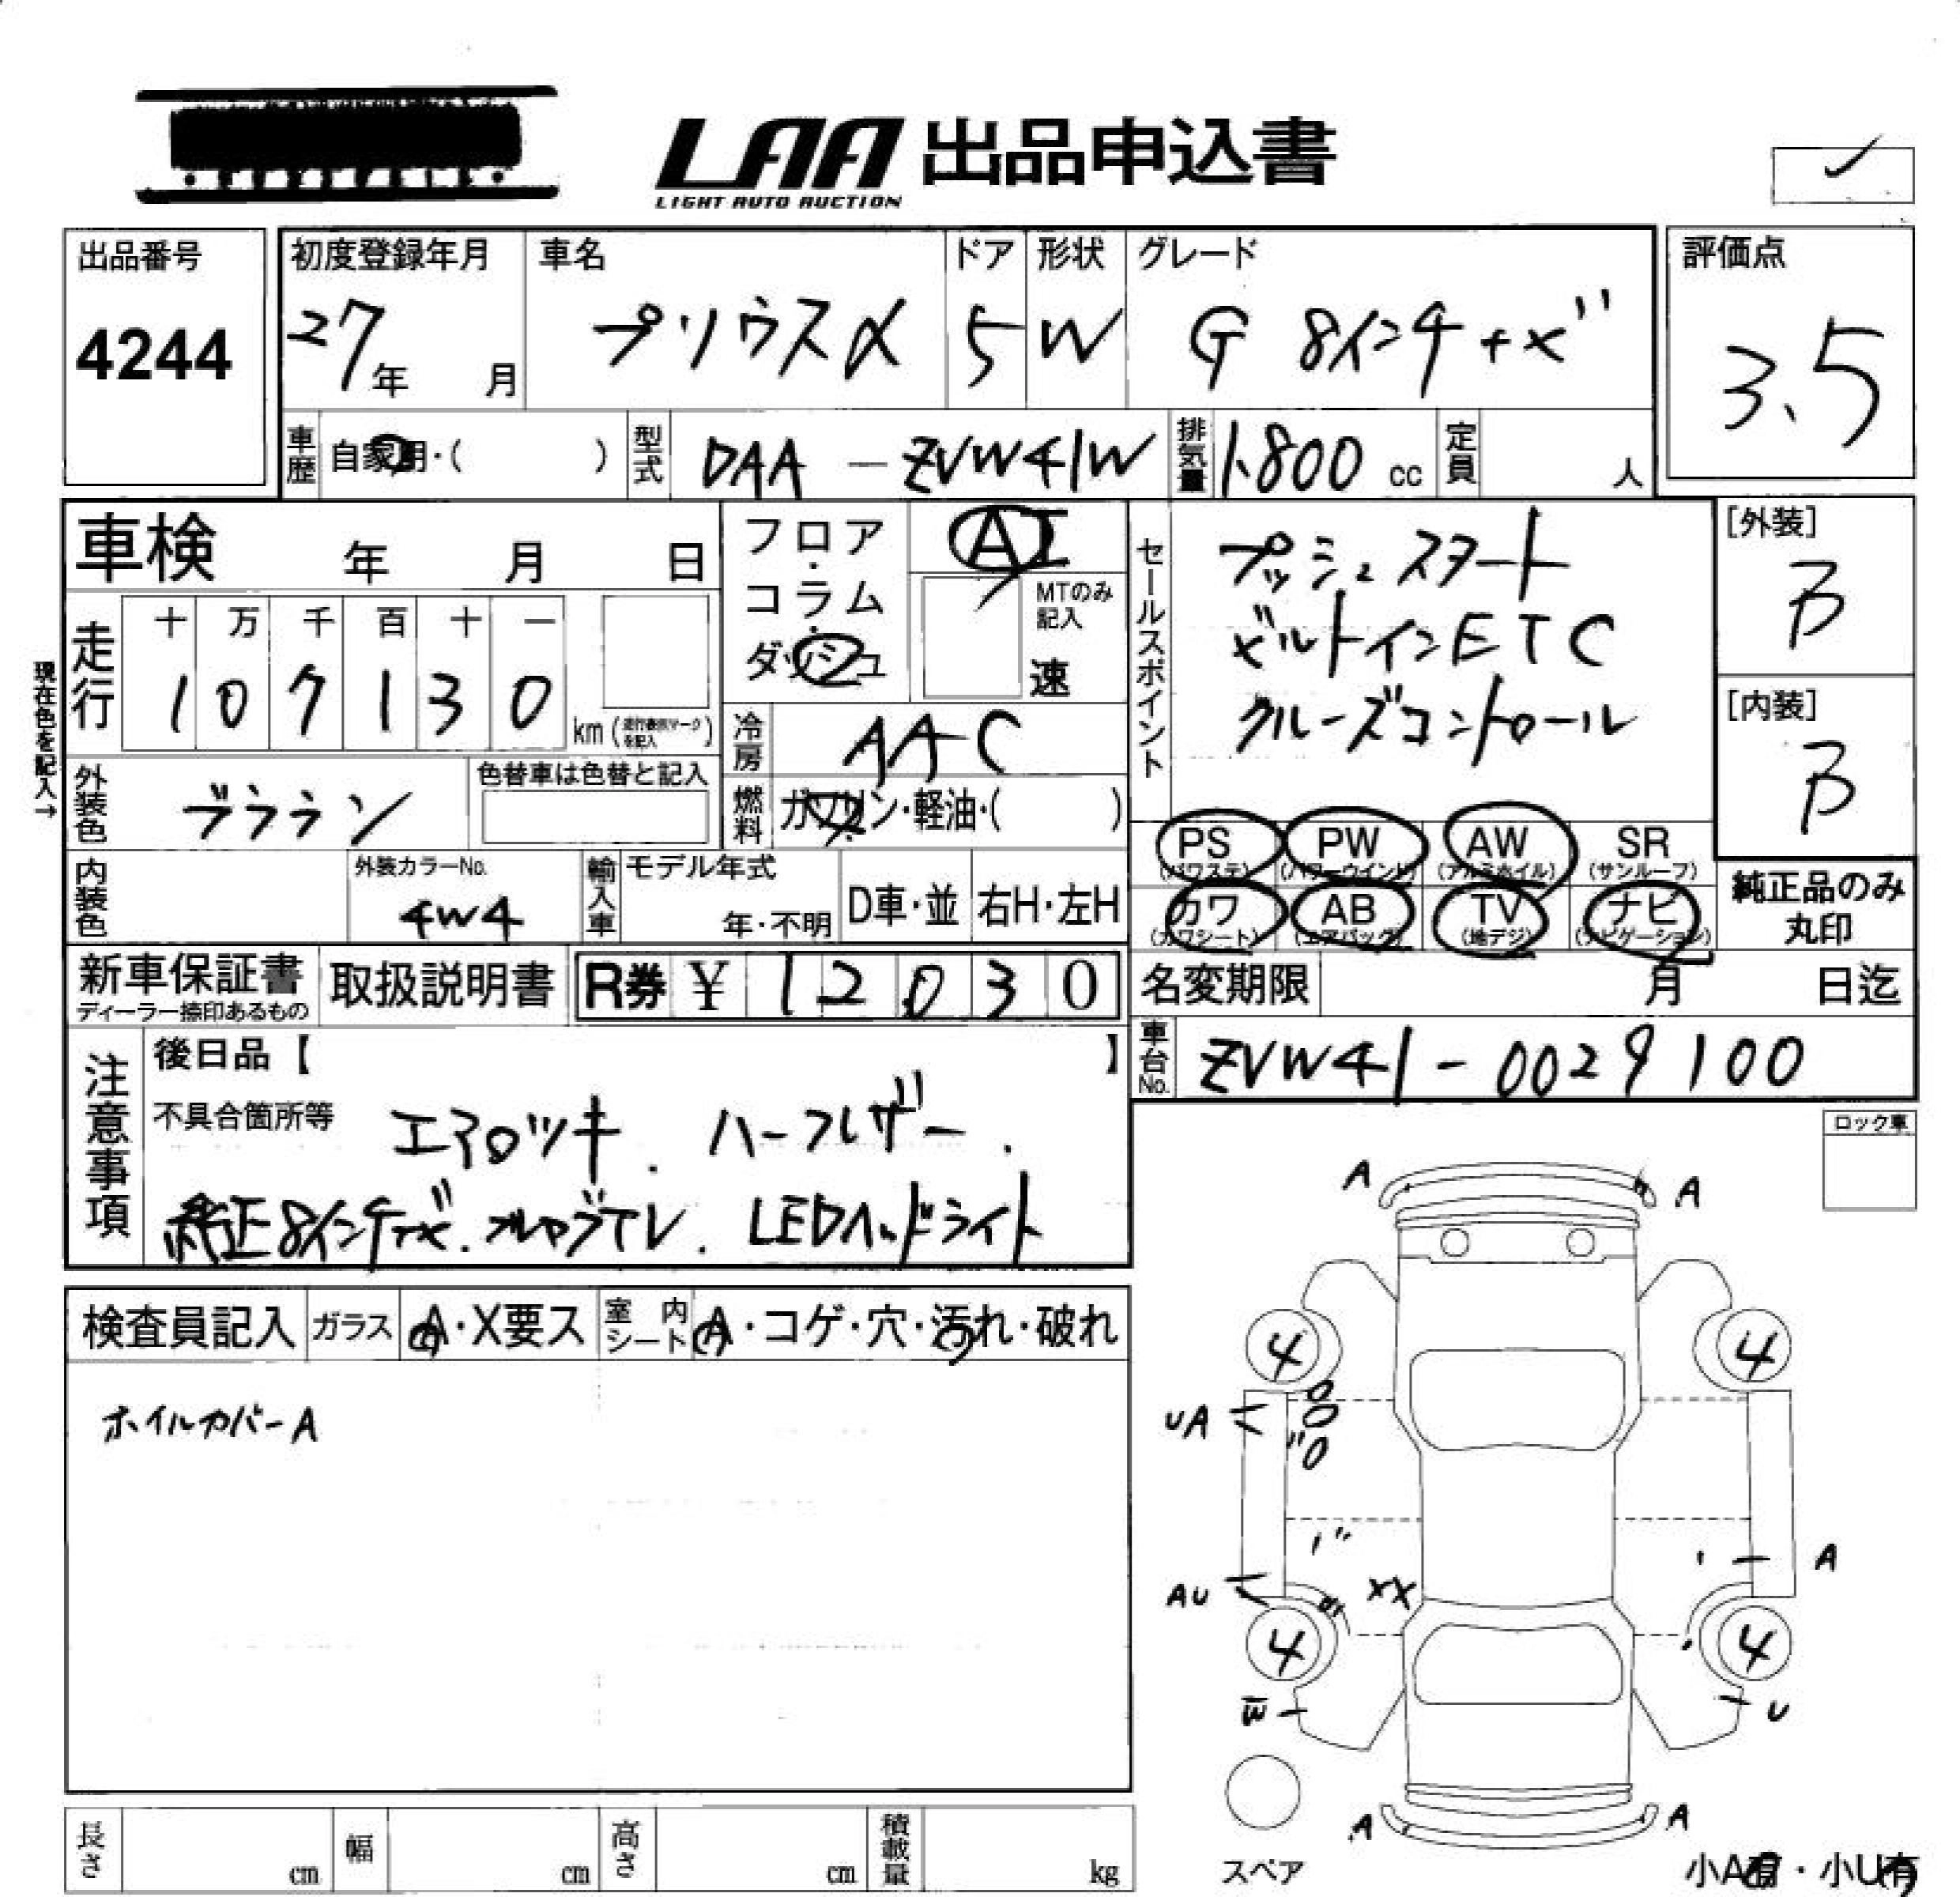 LAA 出品申込書
LIGHT AUTO AUCTION
出品番号
4244
初度登録年月
27年 月
車名
プリウスα
ドア
5
形状
W
グレード
G 8インチナビ
評価点
3.5
車歴 自家用・( )
型式 DAA-ZVW41W
排気量 1.800 cc
定員 人
車検 年 月 日
フロア・コラム・ダッシュ
AT
MTのみ記入
速
セールスポイント
プッシュスタート
ビルトインETC
クルーズコントロール
[外装]
B
[内装]
B
現在色を記入→
走行
十 万 千 百 十 一
1 0 7 1 3 0 km
冷房 AAC
外装色 ブラウン
色替車は色替と記入
燃料 ガソリン・軽油・( )
PS PW AW SR
(パワステ) (パワーウインド) (アルミホイル) (サンルーフ)
カワ AB TV ナビ
(カワシート) (エアバッグ) (地デジ) (ナビゲーション)
純正品のみ
丸印
内装色
外装カラーNo.
4W4
輸入車
モデル年式
年・不明
D車・並
右H・左H
新車保証書
ディーラー捺印あるもの
取扱説明書
R券 ¥ 12030
名変期限 月 日迄
車台No. ZVW41-0029100
注意事項
後日品【 】
不具合箇所等
エアロツキ. ハーフレザー.
純正8インチナビ. フルセグTV. LEDヘッドライト
ロック車
検査員記入
ガラス A・X要ス
室内シート A・コゲ・穴・汚れ・破れ
ホイルカバーA
A A
4 4
UA
A
AU
XX
4 4
W U
A A
スペア
小A有・小U有
長さ cm
幅 cm
高さ cm
積載量 kg